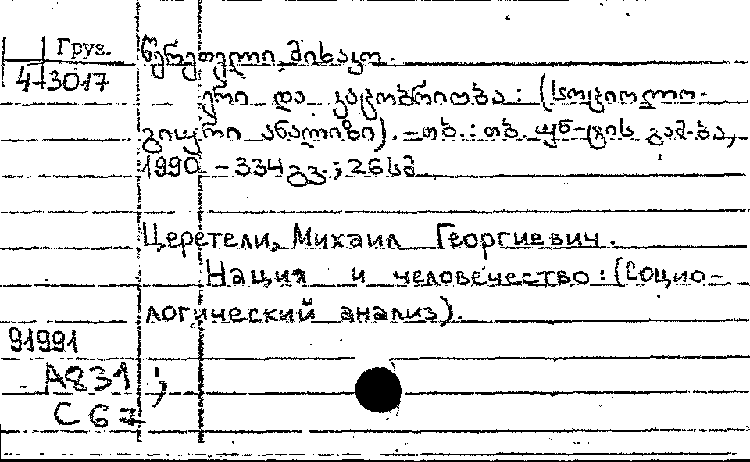 Груз.
4-3017
წერეთელი, მიხაკო.
ერი და კაცობრიობა : (სოციოლო-
გიური ანალიზი). – თბ. : თბ. უნ-ტის გამ-ბა,
1990 – 334 გვ. ; 26 სმ
Церетели, Михаил Георгиевич.
Нация и человечество : (Социо-
логический анализ).
91991
А831 ;
С 67